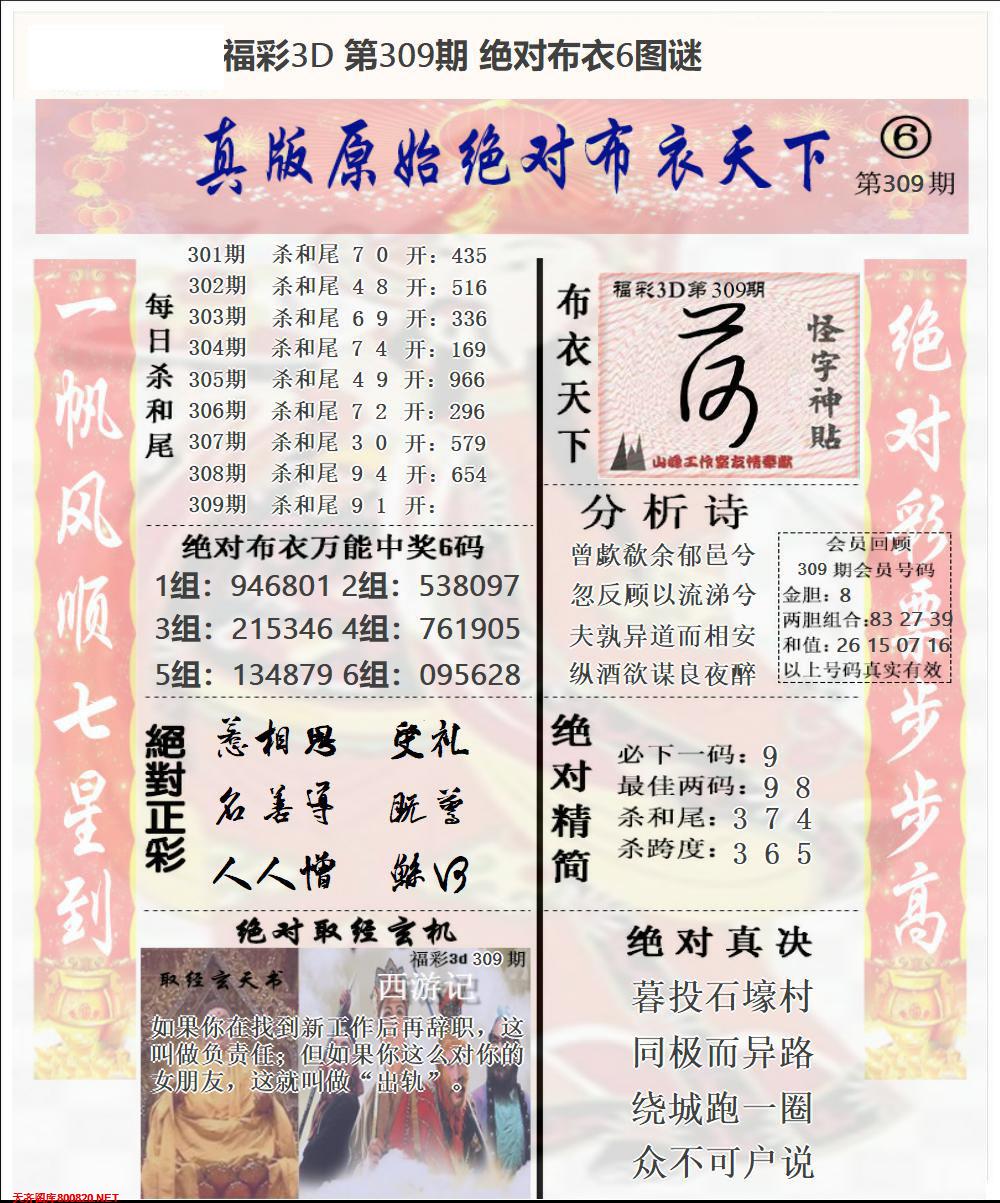 福彩3D 第309期 绝对布衣6图谜
真版原始绝对布衣天下
⑥
第309期
一帆风顺七星到
每日杀和尾
301期 杀和尾 7 0 开：435
302期 杀和尾 4 8 开：516
303期 杀和尾 6 9 开：336
304期 杀和尾 7 4 开：169
305期 杀和尾 4 9 开：966
306期 杀和尾 7 2 开：296
307期 杀和尾 3 0 开：579
308期 杀和尾 9 4 开：654
309期 杀和尾 9 1 开：
绝对布衣万能中奖6码
1组：946801 2组：538097
3组：215346 4组：761905
5组：134879 6组：095628
絕對正彩
惹相思 受礼
名善導 
人人憎 
绝对取经玄机
福彩3d 309期
取经玄天书
西游记
如果你在找到新工作后再辞职，这
叫做负责任；但如果你这么对你的
女朋友，这就叫做“出轨”。
布衣天下
福彩3D第309期
怪字神貼
山峰工作室友情奉献
分析诗
曾歔欷余郁邑兮
忽反顾以流涕兮
夫孰异道而相安
纵酒欲谋良夜醉
会员回顾
309期会员号码
金胆：8
两胆组合:83 27 39
和值：26 15 07 16
以上号码真实有效
绝对精简
必下一码：9
最佳两码：9 8
杀和尾：3 7 4
杀跨度：3 6 5
绝对真决
暮投石壕村
同极而异路
绕城跑一圈
众不可户说
绝对彩票步步高
天齐图库800820.NET